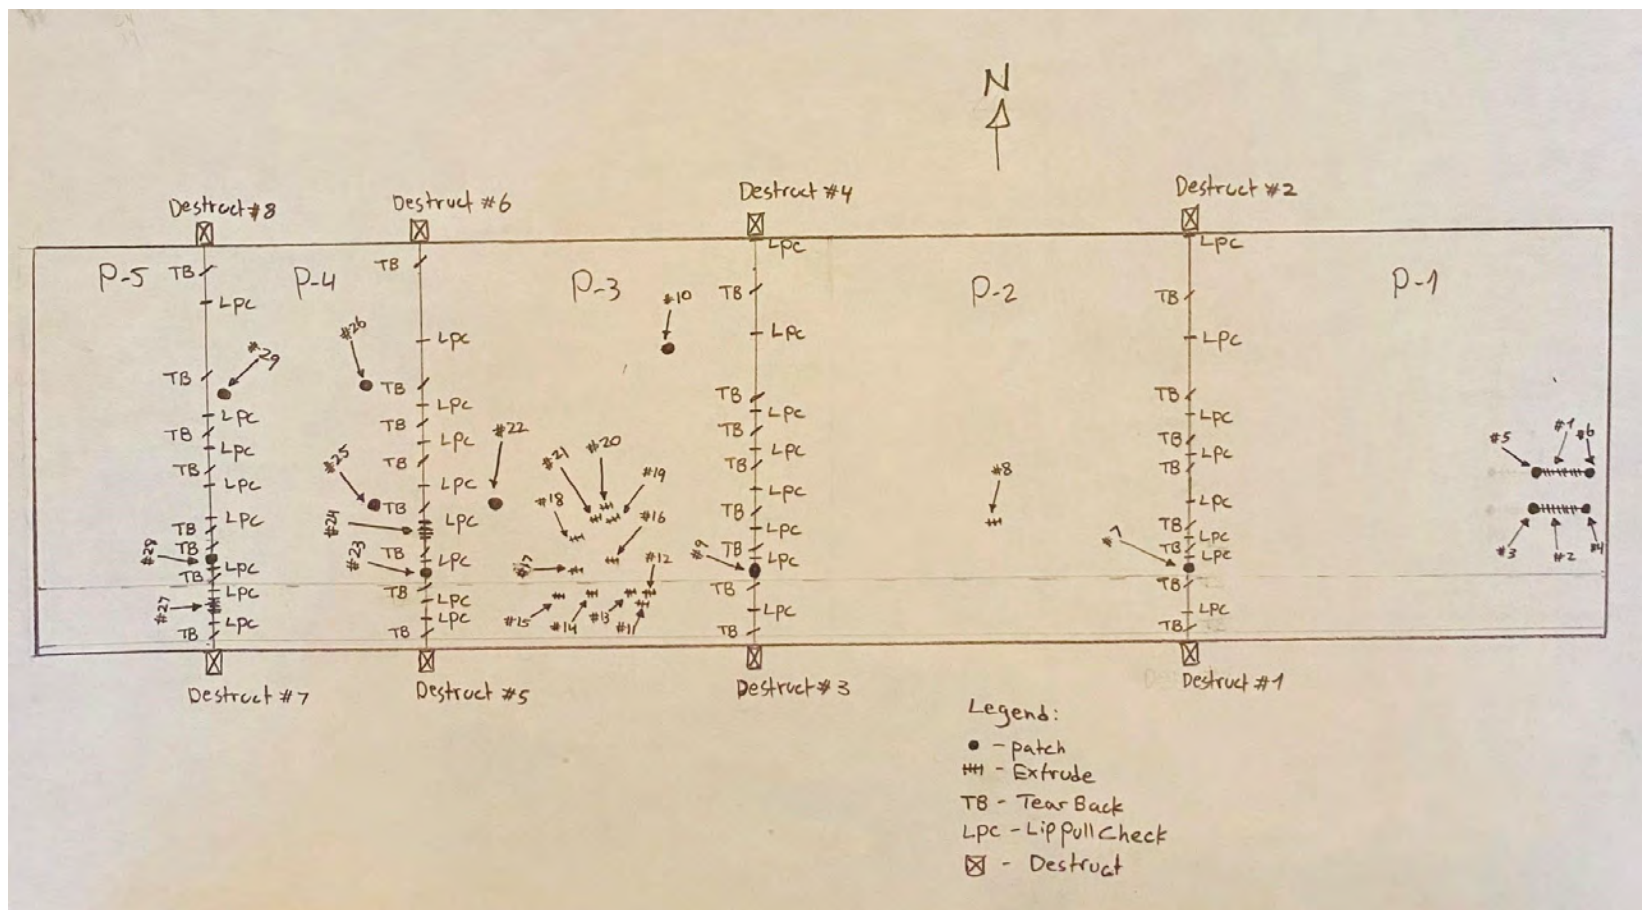 N
Destruct #8
Destruct #6
Destruct #4
Destruct #2
P-5
P-4
P-3
P-2
P-1
TB
LPC
TB
#29
LPC
TB
LPC
TB
LPC
LPC
TB
TB
LPC
TB
LPC
#27
LPC
TB
TB
LPC
#26
TB
LPC
TB
LPC
TB
LPC
#25
TB
LPC
#24
TB
LPC
#23
TB
LPC
LPC
TB
#22
#21
#20
#19
#18
#16
#12
#15
#14
#13
#11
#10
LPC
TB
LPC
TB
LPC
TB
LPC
TB
LPC
TB
LPC
TB
LPC
#9
TB
LPC
TB
#8
LPC
TB
LPC
TB
LPC
TB
LPC
TB
LPC
TB
LPC
TB
LPC
#7
TB
LPC
TB
#5
#1
#6
#3
#2
#4
Destruct #7
Destruct #5
Destruct #3
Destruct #1
Legend:
- patch
- Extrude
TB - Tear Back
LPC - Lip Pull Check
- Destruct